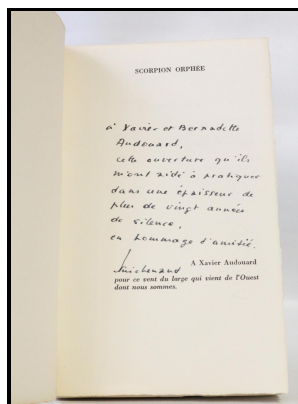 SCORPION ORPHÉE
à Xavier et Bernadette
Audouard,
cette ouverture qu'ils
m'ont aidé à pratiquer
dans une épaisseur de
plus de vingt années
de silence,
en hommage d'amitié.
A Xavier Audouard
pour ce vent du large qui vient de l'Ouest
dont nous sommes.